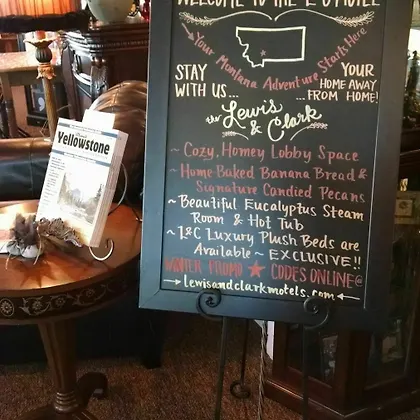 WELCOME TO THE L&C MOTEL
Your Montana Adventure Starts Here
STAY
WITH US...
YOUR
HOME AWAY
...FROM HOME!
the Lewis
& Clark
~ Cozy, Homey Lobby Space
~ Home-Baked Banana Bread &
Signature Candied Pecans
~ Beautiful Eucalyptus Steam
Room & Hot Tub
~ L&C Luxury Plush Beds are
Available ~ EXCLUSIVE!!
WINTER PROMO ★ CODES ONLINE @
→ lewisandclarkmotels.com ←
Yellowstone